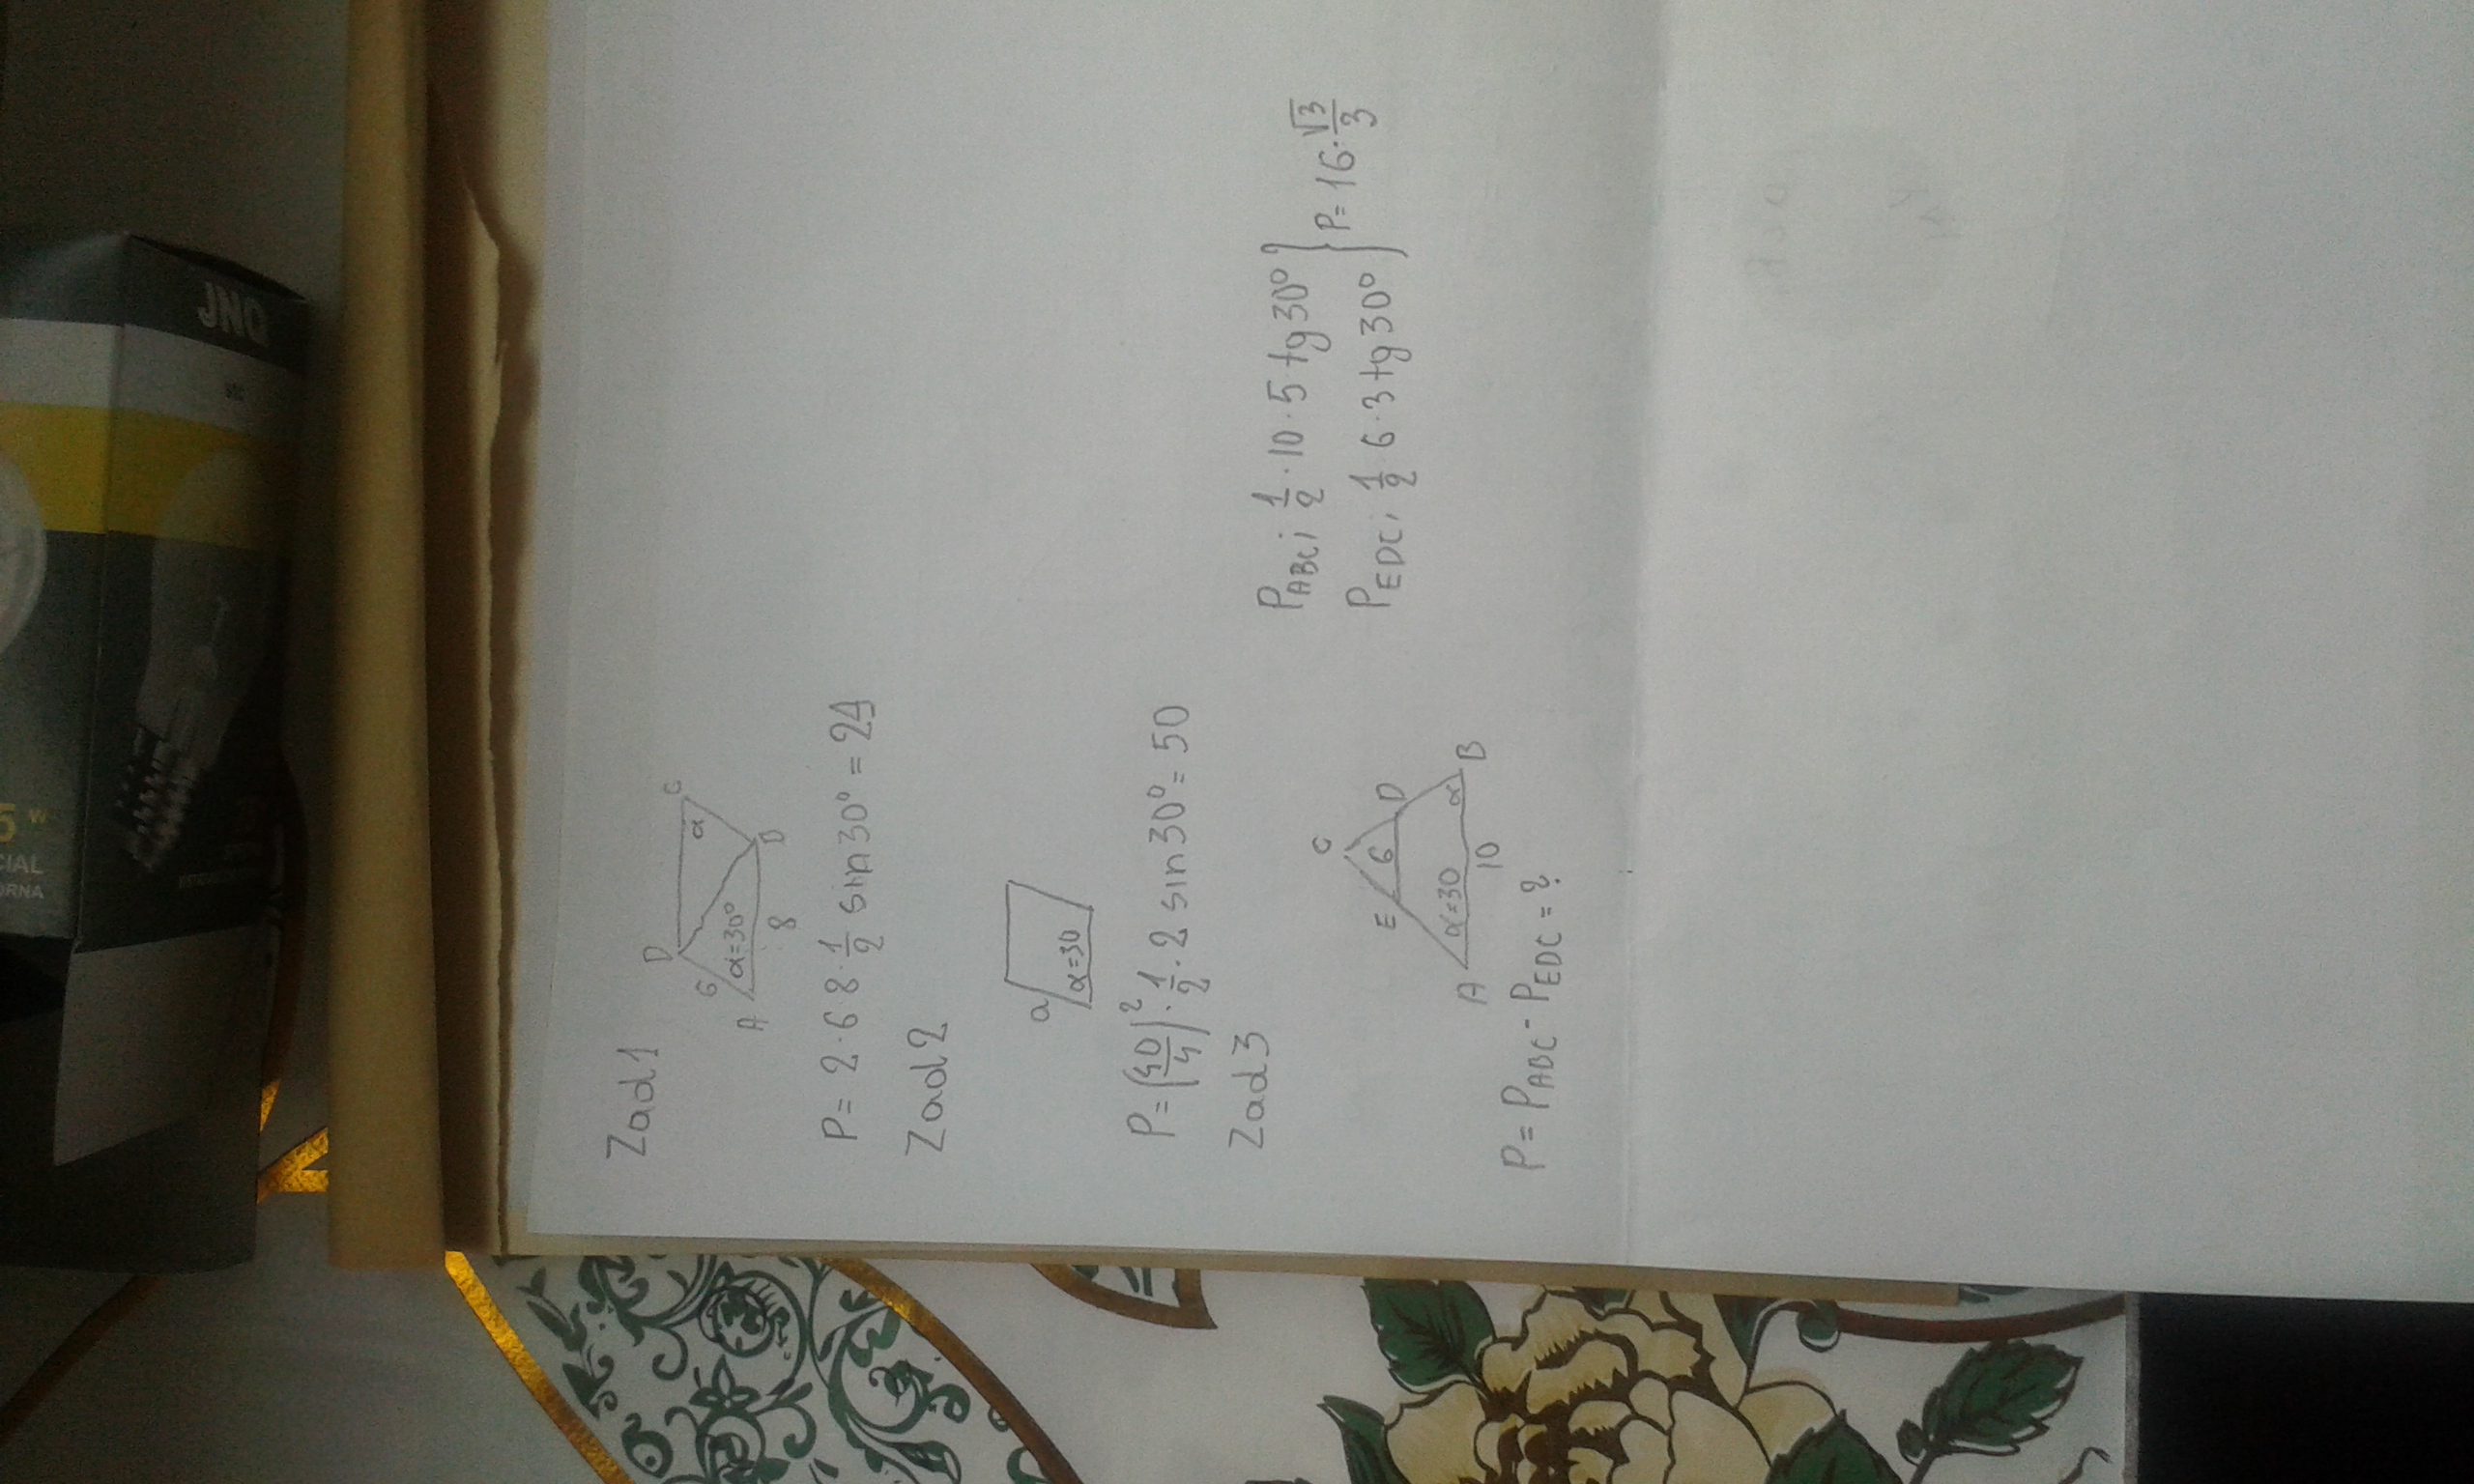 Zad1
D C
6 α=30° α
A 8 B
P= 2·6·8·1/2 sin30° = 24
Zad2
a
α=30
P=(40/4)²·1/2·2 sin30°=50
Zad3
C
E 6 D
α=30 α
A 10 B
P=P_ABC-P_EDC=?
P_ABC; 1/2·10·5·tg30°
P_EDC; 1/2 6·3 tg30°
} P=16·√3/3
JNQ
5 W
CIAL
ORNA